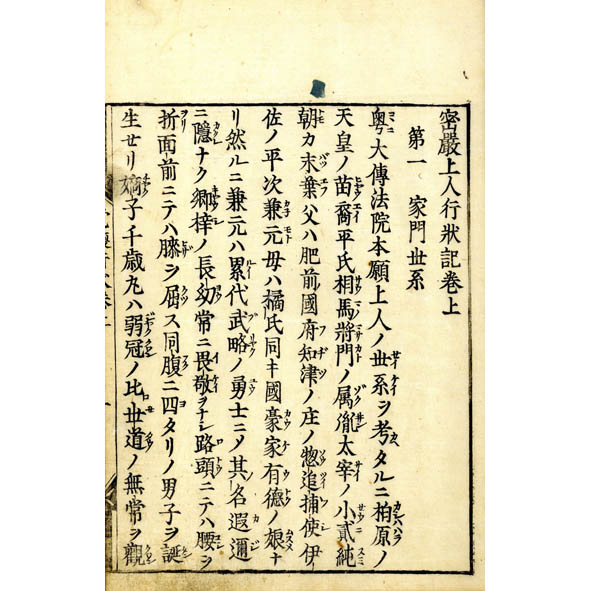 密嚴上人行狀記卷上
第一 家門世系
粤大傳法院本願上人ノ世系ヲ考タルニ柏原ノ
天皇ノ苗裔平氏相馬將門ノ属胤太宰ノ小貳純
朝カ末葉父ハ肥前國府知津ノ庄ノ惣追捕使伊
佐ノ平次兼元母ハ橘氏同キ國豪家有德ノ娘ナ
リ然ルニ兼元ハ累代武略ノ勇士ニメ其名遐邇
ニ隱ナク郷梓ノ長幼常ニ畏敬ヲナシ路頭ニテハ腰ヲ
折面前ニテハ膝ヲ屈ス同腹ニ四タリノ男子ヲ誕
生セリ嫡子千歳丸ハ弱冠ノ比世道ノ無常ヲ觀